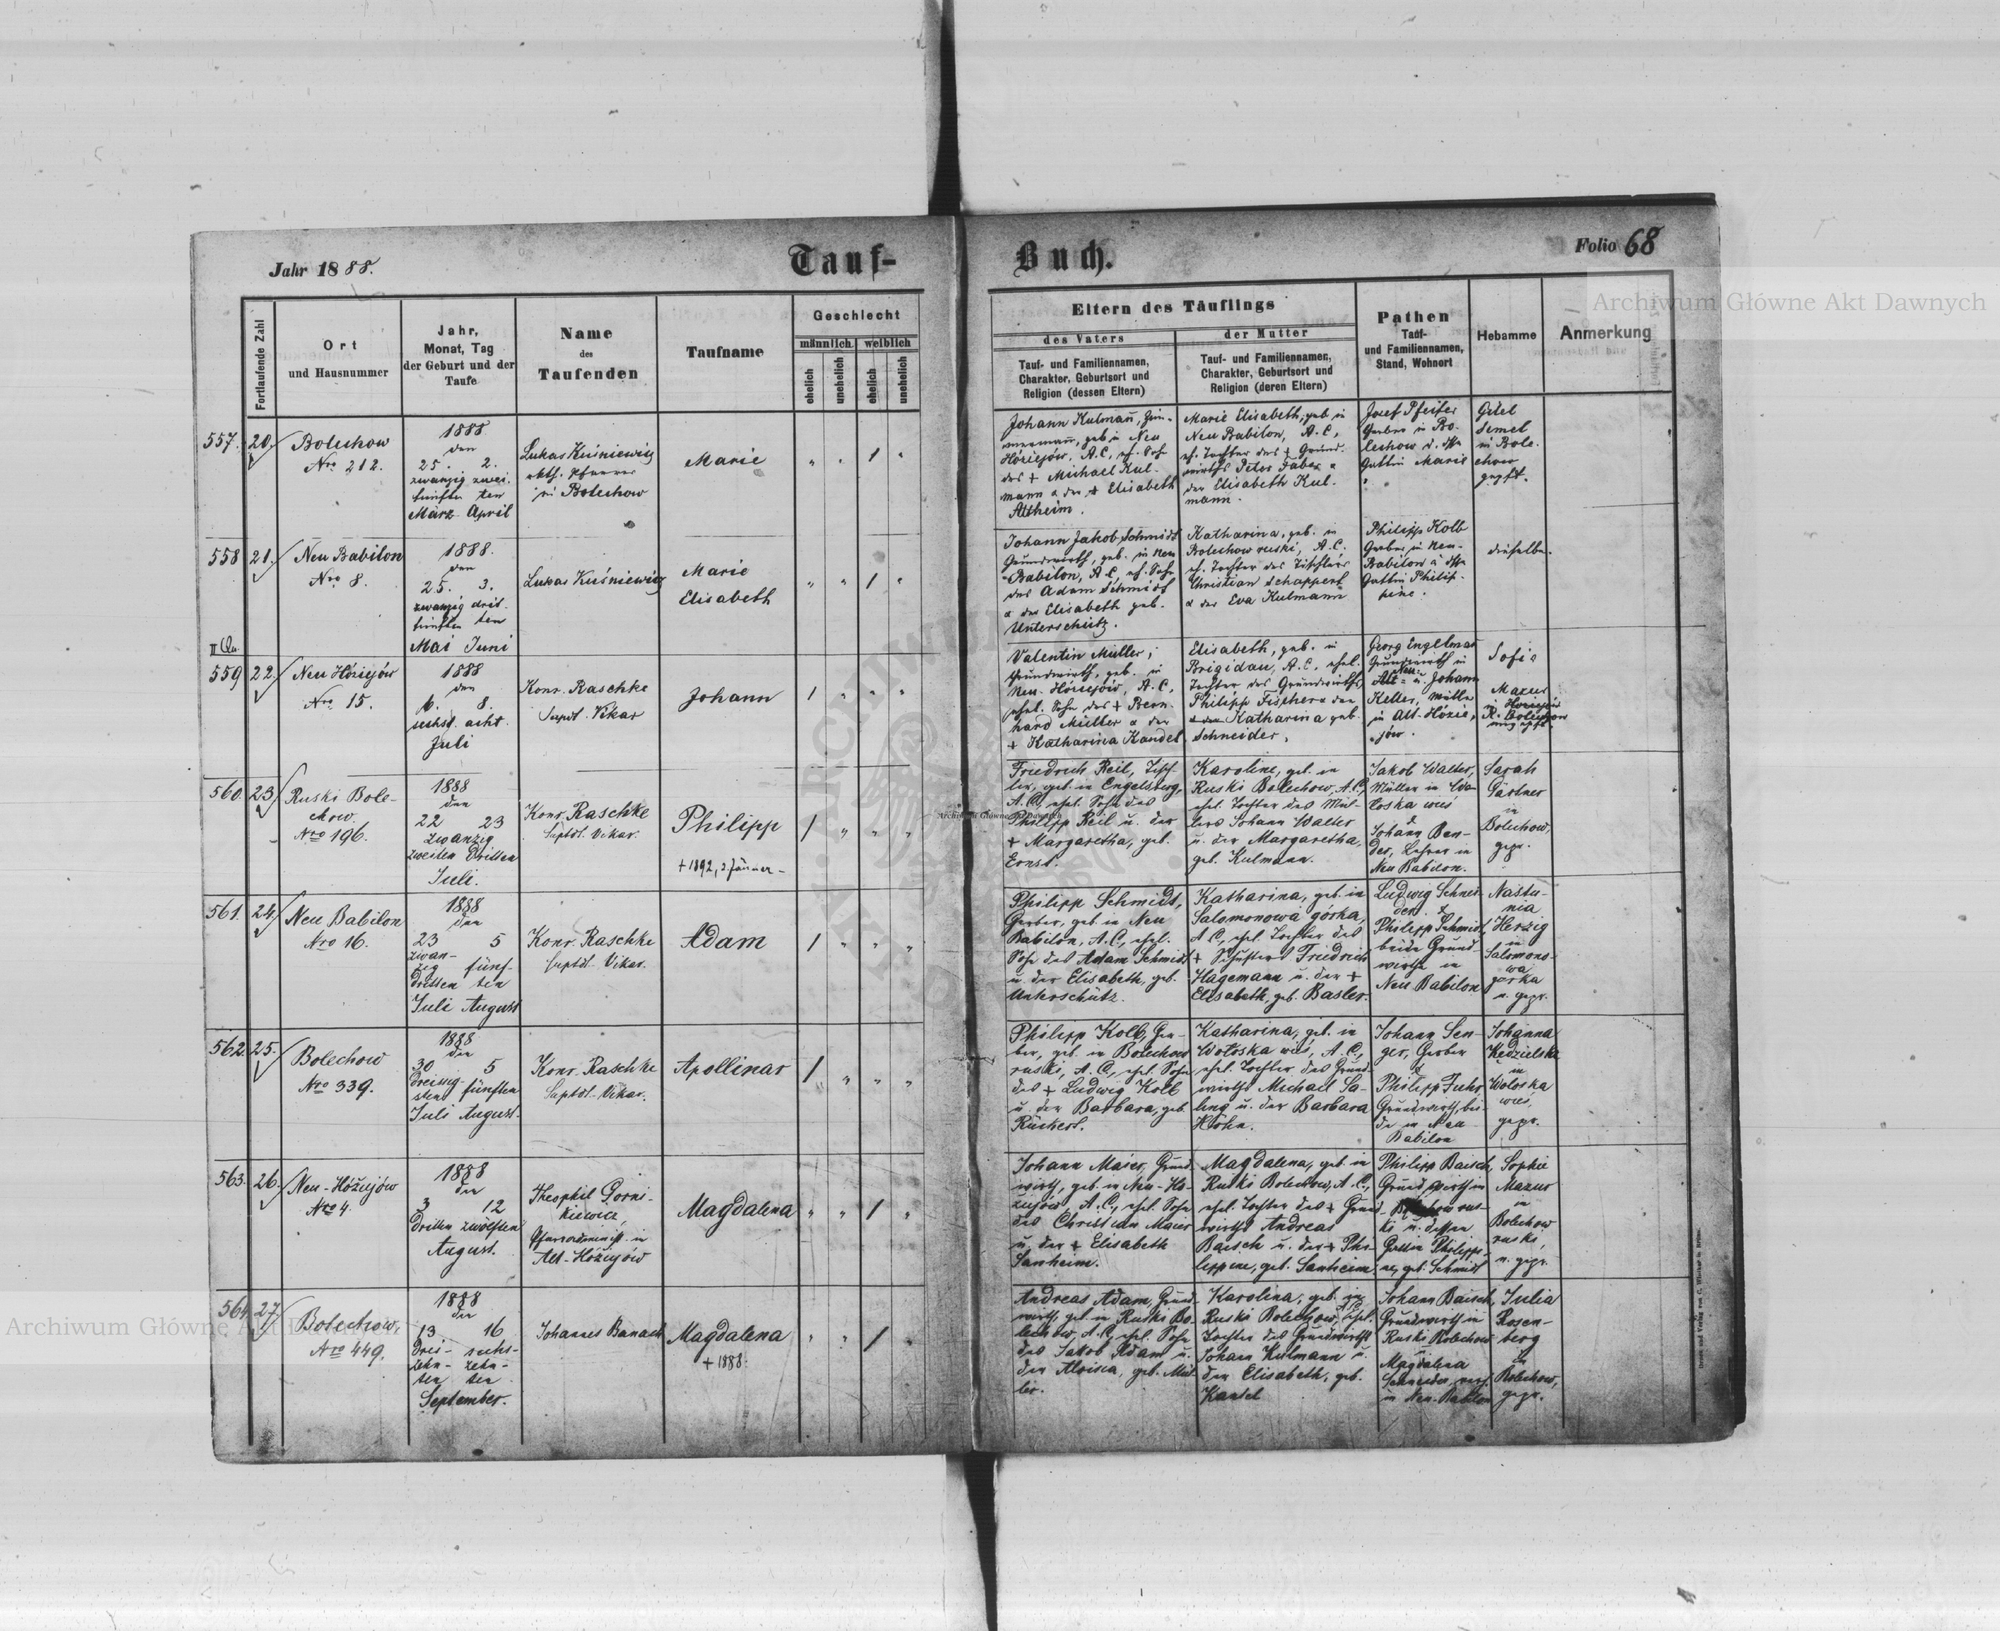 Jahr 1888.
Tauf-
Buch.
Folio 68
Archiwum Główne Akt Dawnych
Fortlaufende Zahl
Ort
und Hausnummer
Jahr,
Monat, Tag
der Geburt und der
Taufe
Name
des
Taufenden
Taufname
Geschlecht
männlich
weiblich
ehelich
unehelich
ehelich
unehelich
Eltern des Täuflings
des Vaters
der Mutter
Tauf- und Familiennamen,
Charakter, Geburtsort und
Religion (dessen Eltern)
Tauf- und Familiennamen,
Charakter, Geburtsort und
Religion (deren Eltern)
Pathen
Tauf-
und Familiennamen,
Stand, Wohnort
Hebamme
Anmerkung
557. 20.
Bolechow
Nro 212.
1888
den
25. 2.
zwanzig zwei-
fünften ten
März April
Lukas Kuśniewicz
kath. Pfarrer
in Bolechow
Marie
Johann Kulmann, Zim-
mermann, geb. in Neu
Hóziejów, A.C., eh. Sohn
des + Michael Kul-
mann u. der + Elisabeth
Altheim.
Marie Elisabeth, geb. in
Neu Babilon, A.C.,
eh. Tochter des + Grund-
wirths Peter Faber u
der Elisabeth Kul-
mann.
Josef Pfeifer
Gerber in Bo-
lechow u. dße
Gattin Marie
Gitel
Semel
in Bole-
chow
geprft.
558 21.
Neu Babilon
Nro 8.
1888.
den
25. 3.
zwanzig drit-
fünften ten
Mai Juni
Lukas Kuśniewicz
Marie
Elisabeth
Johann Jakob Schmidt
Grundwirth, geb. in Neu
Babilon, A.C., eh. Sohn
des Adam Schmidt
u der Elisabeth geb.
Unterschütz.
Katharina, geb. in
Bolechow ruski, A.C.
eh. Tochter des Tischlers
Christian Schappert
u der Eva Kulmann
Philipp Kolb
Gerber in Neu-
Babilon u dße
Gattin Philip-
pine.
dieselbe.
II Qu.
559 22.
Neu Hóziejów
Nro 15.
1888
den
6. 8.
sechst. acht.
Juli
Konr. Raschke
Suptdl. Vikar
Johann
Valentin Müller,
Grundwirth, geb. in
Neu-Hóziejów, A.C.,
ehel. Sohn des + Bern-
hard Müller u der
+ Katharina Kandel
Elisabeth, geb. in
Brigidau, A.C., ehel.
Tochter des Grundwirths
Philipp Fischer u der
Katharina geb.
Schneider.
Georg Engelmar
Grundwirth in
Neu- u. Johann
Keller, Müller
in Alt-Hózie-
jów.
Sofie
Mazur
in Hoziejów
R. Bolechow
560. 23
Ruski Bole-
chow.
Nro 196.
1888
den
22 23
zwanzig
zweiten Dritten
Juli.
Konr. Raschke
Suptdl. Vikar.
Philipp
+ 1892, 2. Jänner -
Friedrich Reil, Tisch-
ler, geb. in Engelsberg,
A.C., ehel. Sohn des
Philipp Reil u. der
+ Margaretha, geb.
Ernst.
Karoline, geb. in
Ruski Bolechow, A.C.,
ehel. Tochter des Mül-
lers Johann Walter
u. der Margaretha,
geb. Kulmann.
Jakob Walter,
Müller in Wo-
łoska wieś
&
Johann Ben-
der, Lehrer in
Neu Babilon.
Sarah
Gärtner
in
Bolechow,
gepr.
561. 24
Neu Babilon
Nro 16.
1888
den
23 5
zwan-
zig fünf-
dritten ten
Juli August
Konr. Raschke
Suptdl. Vikar.
Adam
Philipp Schmidt,
Gerber, geb. in Neu
Babilon, A.C., ehel.
Sohn des Adam Schmidt
u. der Elisabeth, geb.
Unterschütz.
Katharina, geb. in
Salomonowa górka,
A.C., ehel. Tochter des
+ Schusters Friedrich
Hagemann u. der +
Elisabeth, geb. Basler.
Ludwig Schnei-
der &
Philipp Schmidt
beide Grund-
wirthe in
Neu Babilon
Nastu-
nia
Herzig
in
Salomono-
wa
górka
u. gepr.
562. 25.
Bolechow
Nro 339.
1888
den
30 5
Dreissig-
sten fünften
Juli August.
Konr. Raschke
Suptdl. Vikar.
Apollinar
Philipp Kolb, Ger-
ber, geb. in Bolechow
ruski, A.C., ehel. Sohn
des + Ludwig Kolb
u. der Barbara, geb.
Rückert.
Katharina, geb. in
Wołoska wieś, A.C.,
ehel. Tochter des Grund-
wirths Michael Sa-
ling u. der Barbara
Höhn.
Johann Sen-
ger, Gerber
&
Philipp Fuhr,
Grundwirth, bei-
de in Neu
Babilon
Johanna
Kedzielska
in
Wołoska
wieś,
gepr.
563. 26.
Neu-Hóziejów
Nro 4.
1888
den
3 12
Dritten zwölften
August.
Theophil Gorni-
kiewicz,
Pfarradminist. in
Alt-Hóziejów
Magdalena
Johann Maier, Grund-
wirth, geb. in Neu-Hó-
ziejów, A.C., ehel. Sohn
des Christian Maier
u. der + Elisabeth
Sanheim.
Magdalena, geb. in
Ruski Bolechow, A.C.,
ehel. Tochter des + Grund-
wirths Andreas
Baisch u. der + Phi-
lippine, geb. Sanheim
Philipp Baisch,
Grundwirth in
Bolechow rus-
ki u. dessen
Gattin Philippi-
ne, geb. Schmidt
Sophie
Mazur
in
Bolechow
ruski,
u. gepr.
564 27.
Bolechow,
Nro 449.
1888
den
13 16
Drei- sechs-
zehn- zehn-
ten ten
September.
Johannes Banach
Magdalena
+ 1888.
Andreas Adam, Grund-
wirth, geb. in Ruski Bo-
lechow, A.C., ehel. Sohn
des Jakob Adam u.
der Aloisia, geb. Mül-
ler.
Karolina, geb. in
Ruski Bolechow, ehel.
Tochter des Grundwirths
Johann Kulmann u.
der Elisabeth, geb.
Kandel
Johann Baisch,
Grundwirth in
Ruski Bolechow
u.
Magdalena
Schneider
in Neu-Babilon
Julia
Rosen-
berg
in
Bolechow,
gepr.
Archiwum Główne Akt Dawnych